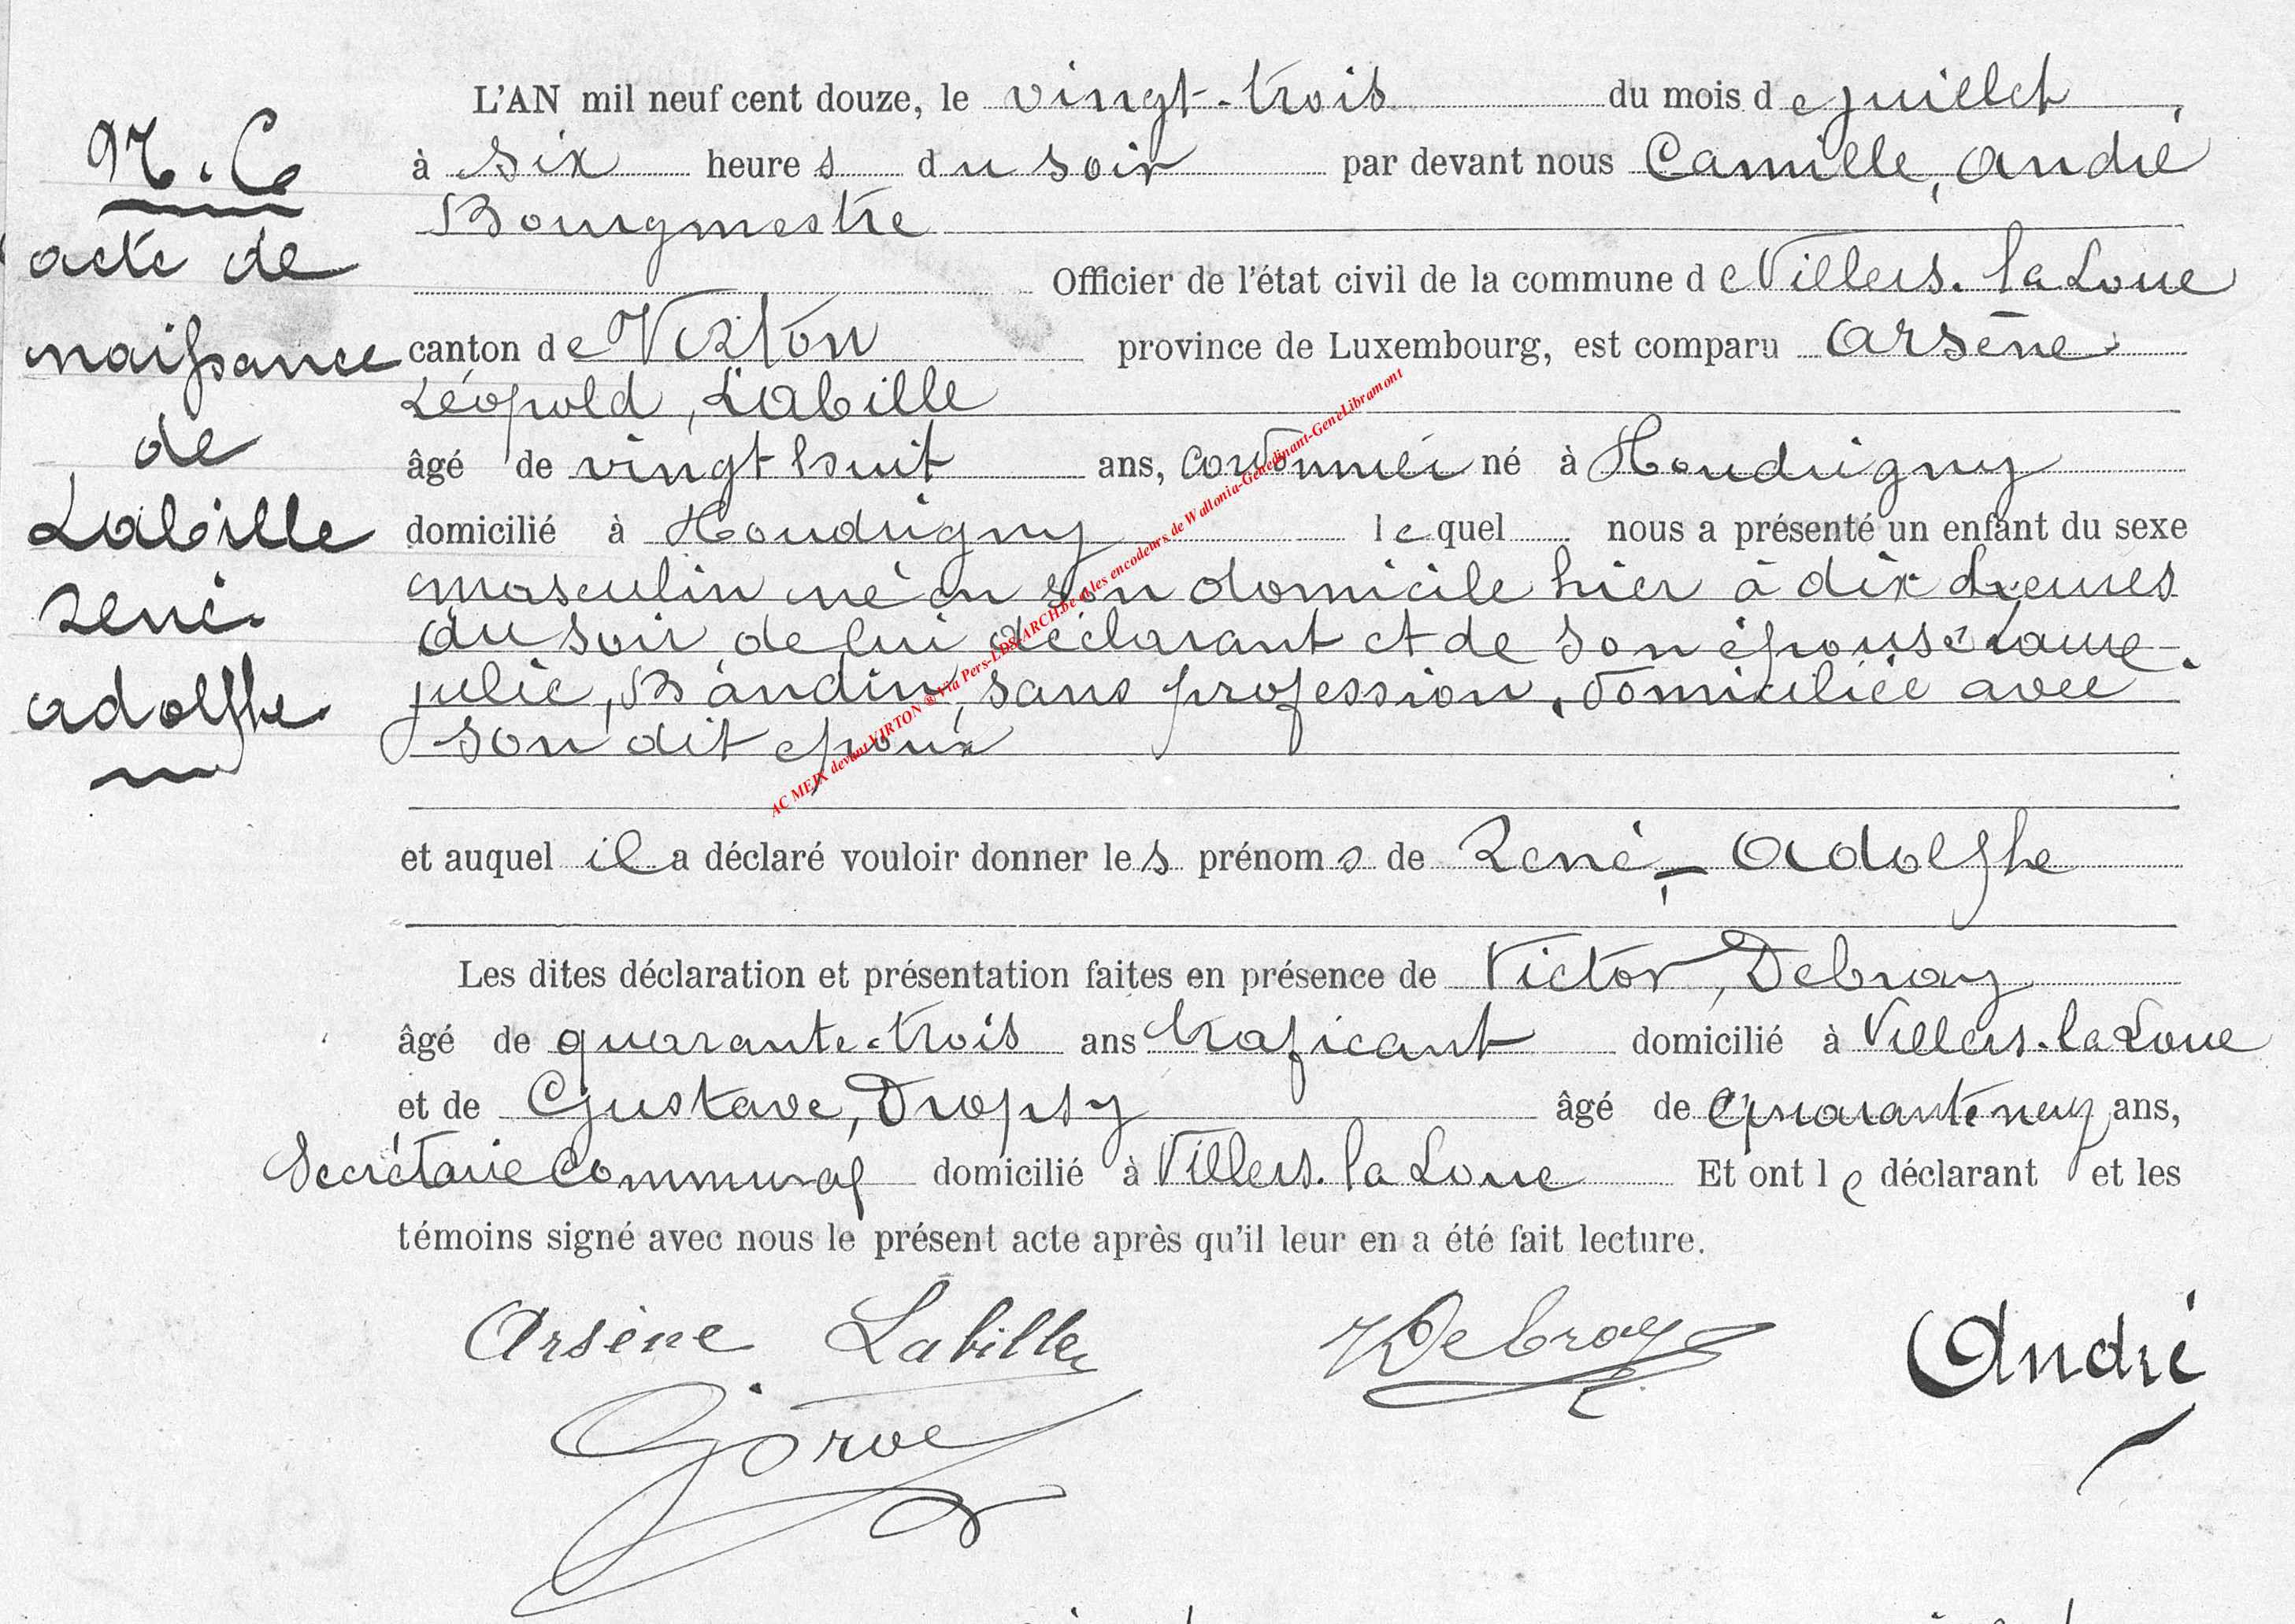 N. 6
acte de
naissance
de
Labille
René
adolphe
L'AN mil neuf cent douze, le vingt-trois du mois de juillet,
à six heures du soir par devant nous Camille, André
Bourgmestre
Officier de l'état civil de la commune de Villers-la Loue
canton de Virton province de Luxembourg, est comparu Arsène
Léopold, Labille
âgé de vingt huit ans, cordonnier né à Houdrigny
domicilié à Houdrigny lequel nous a présenté un enfant du sexe
masculin né en son domicile hier à dix heures
du soir de lui déclarant et de son épouse Laure
julie, Baudin, sans profession, domiciliée avec
son dit époux
et auquel il a déclaré vouloir donner les prénoms de René - Adolphe
Les dites déclaration et présentation faites en présence de Victor, Debray
âgé de quarante-trois ans traficant domicilié à Villers-la Loue
et de Gustave, Dropsy âgé de quarante neuf ans,
Secrétaire communal domicilié à Villers-la Loue Et ont le déclarant et les
témoins signé avec nous le présent acte après qu'il leur en a été fait lecture.
Arsène Labille VDebray André
AC MEIX devant VIRTON ® Via Pers-LDS-ARCH.be et les encodeurs de Wallonia-Genedinant-GeneLibramont